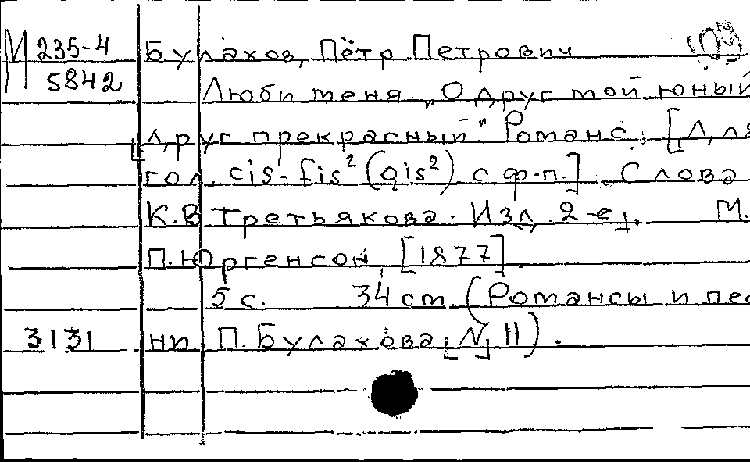 М 235-4
5842
Булахов, Пётр Петрович
Люби меня „О друг мой юный
друг прекрасный" Романс. [Для
гол. cis-fis² (gis²) с ф-п.]. Слова
К.В. Третьякова. Изд. 2-е. М.
П. Юргенсон, [1877]
5 с. 34 см. (Романсы и пес
3131 ни П. Булахова, № 11).